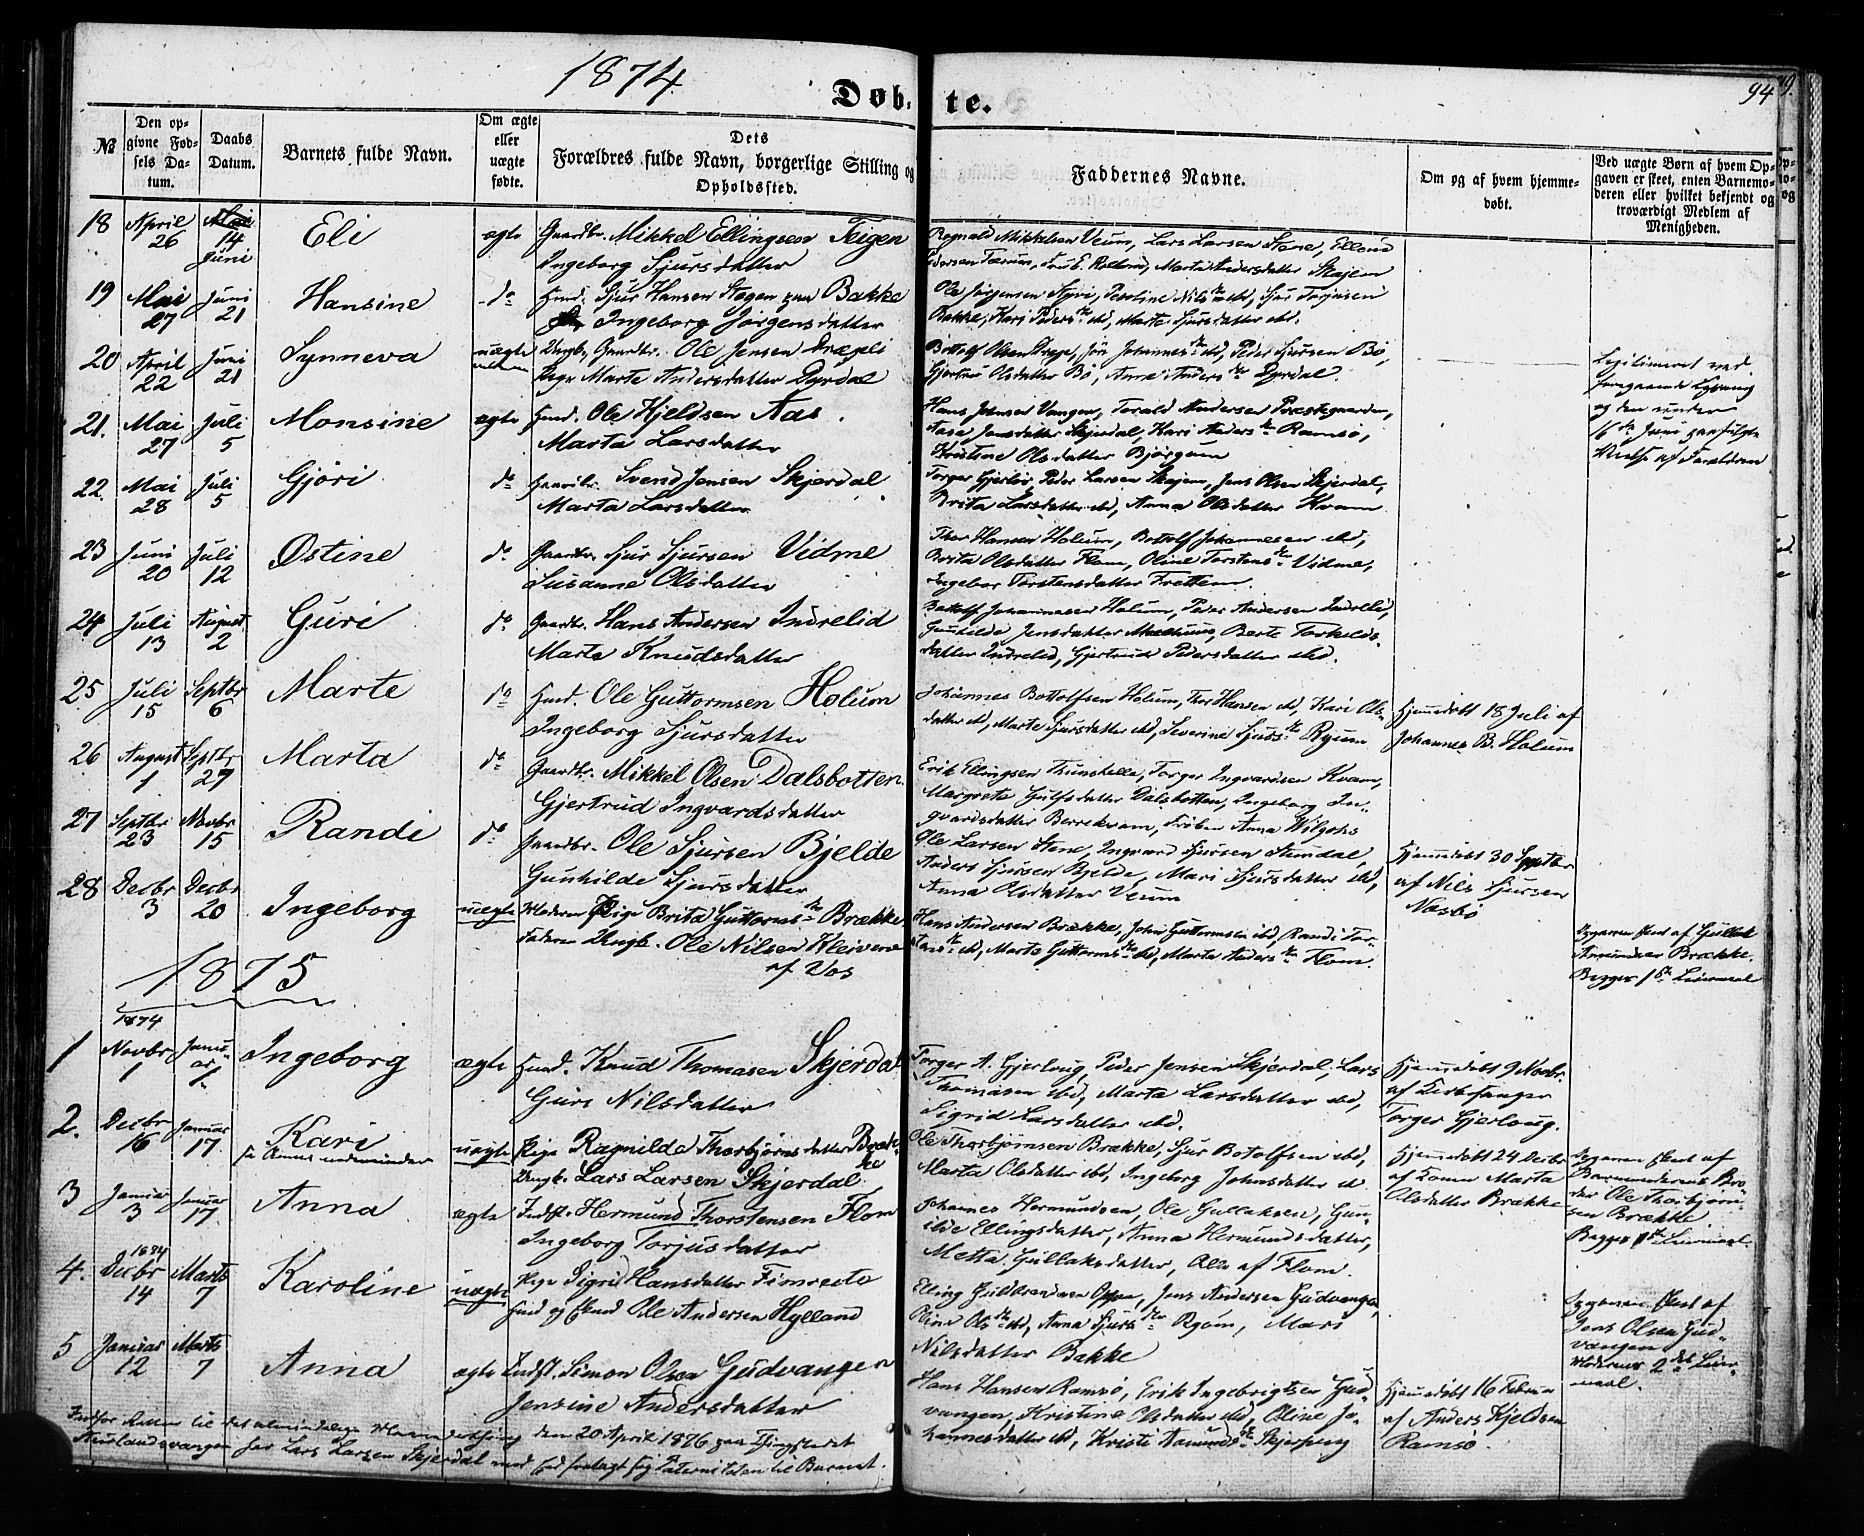 1874
Døb- te.
94
№
Den opgivne Fødsels Datum.
Daabs Datum.
Barnets fulde Navn.
Om ægte eller uægte fødte.
Dets Forældres fulde Navn, borgerlige Stilling og Opholdssted.
Faddernes Navne.
Om og af hvem hjemmedøbt.
Ved uægte Børn af hvem Opgaven er skeet, enten Barnemoderen eller hvilket bekjendt og troværdigt Medlem af Menigheden.
18 April 26 Mai 14 Juni Eli ægte Gaardbr. Mikkel Ellingsen Teigen
Ingeborg Sjursdatter
Ragnald Mikkelsen Veum, Lars Larsen Stene, Ellend
Pedersen Marta Andersdatter Skajem
19 Mai 27 Juni 21 Hansine do Huusd. Sjur Hansen Stegen paa Bakke
Ingeborg Jørgensdatter
Ole Jørgensen Styvi, Peroline Nilsdtr ibd, Sjur Torjusen
Bakke, Kari Pedersdtr ibd, Marte Sjursdatter ibd.
20 April 22 Juni 21 Synneva uægte Ungk. Gaardbr. Ole Jensen Drægli
Pige Marte Andersdatter Dyrdal
Bottolf Olsen Drege, Jon Johannes ibd, Peder Sjursen Bø,
Gjertrud Olsdatter Bø, Anna Andersdtr Dyrdal.
Legitimeret ved
foregaaende Lysning
og den under
16de Juni paafulgte
Vielse af Forældrene
21. Mai 27 Juli 5 Monsine ægte Huusd. Ole Kjeldsen Aas.
Marta Larsdatter
Hans Johnsen Vangen, Torald Andersen Præstegaarden,
Aasa Jensdatter Skjerdal, Kari Andersdtr Ramsø,
Kristine Olsdatter Bjørgum
22. Mai 28 Juli 5 Gjøri do Gaardbr. Svend Jensen Skjerdal
Marta Larsdatter
Torger Gjerløv, Peder Larsen Skajem, Jens Olsen Skjerdal,
Brita Larsdatter ibd, Anna Olsdatter Kvam
23 Juni 20 Juli 12 Østine do Gaardbr. Sjur Sjursen Vidme
Susanne Olsdatter
Thor Hansen Holum, Bottolf Johannessen ibd,
Brita Olsdatter Flom, Oline Torstensdtr Vidme,
Ingebor Torstensdatter Frettem.
24 Juli 13 August 2 Guri do Gaardbr. Hans Andersen Indrelid
Marta Knudsdatter
Bottolf Johannesen Holum, Peder Andersen Indrelid,
Gunhilde Jensdatter Melhuus, Berte Torkelds
datter Indrelid, Gjertrud Pedersdatter ibd.
25 Juli 15 Septbr 6 Marte do Huusd. Ole Guttormsen Holum
Ingeborg Sjursdatter
Johannes Bottolfsen Holum, Thor Hansen ibd, Kari Ols-
datter ibd, Marte Sjursdatter ibd, Severine Sjursdtr Ryum
Hjemmedøbt 18 Juli af
Johannes B. Holum
26 August 1 Septbr 27 Marta do Gaardbr. Mikkel Olsen Dalsbotten
Gjertrud Ingvardsdatter
Erik Ellingsen Thunshelle, Torger Ingvardsen Kvam,
Margreta Gulfsdatter Dalsbotten, Ingeborg In-
gvardsdatter Berrekvam, Frøken Anna
27 Septbr 23 Novbr 15 Randi do Gaardbr. Ole Sjursen Bjelde
Gunhilde Sjursdatter
Ole Larsen Stene, Ingvard Sjursen Stundal,
Anders Sjursen Bjelde, Mari Sjursdatter ibd,
Anna Olsdatter Veum
Hjemmedøbt 30 Septbr
af Nils Sjursen
Næsbø
28 Decbr 3 Decbr 20 Ingeborg uægte Moderen Pige Brita Guttormsdtr Brække
Faderen Ungk. Ole Nilsen Kleivene
af Vos
Hans Andersen Brække, John Guttormsen ibd, Randi Tor-
stensdtr ibd, Marta Guttormsdtr ibd, Marta Andersdtr Flom.
Opgaven skeet af Gullak
Amundsen Brække.
Begges 1ste Leiermaal
1875
1 1874 Novbr 1 Januar 1 Ingeborg ægte Huusd. Knud Thomasen Skjerdal
Guri Nilsdatter
Torger A. Gjerløug, Peder Jensen Skjerdal, Lars
Thomasen ibd, Marta Larsdatter ibd,
Sigrid Larsdatter ibd.
Hjemmedøbt 9 Novbr.
af Kirkesanger
Torger Gjerløug.
2. Decbr 16 Januar 17 Kari
se Anmærkning nedenunder
uægte Pige Ragnilda Thorbjørnsdatter Bræk-
ke
Ungk. Lars Larsen Skjerdal
Ole Thorbjørnsen Brække, Sjur Botolfsen ibd,
Marta Olsdatter ibd, Ingeborg Johnsdatter ibd.
Hjemmedøbt 24 Decbr
af Konen Marta
Olsdatter Brække
Opgaven skeet af
Barnemoderens Bro-
der Ole Thorbjørn-
sen Brække
Begges 1ste Leiermaal.
3 Januar 3 Januar 17 Anna ægte Indst. Hermund Thorstensen Flom
Ingeborg Torjusdatter
Johannes Hermundsen, Ole Gullaksen, Gun-
ilde Ellingsdatter, Anna Hermundsdatter,
Metta Gullaksdatter, Alle af Flom.
4. 1874 Decbr 14 Marts 7 Karoline uægte Pige Sigrid Hansdatter Fimreite
Huusd og Enkem Ole Andersen Hylland
Elling Guldbrandsen Oppen, Jens Andersen Gudvangen,
Oline Olsdtr ibd, Anna Sjursdtr Ryum, Mari
Nilsdatter Bakke
Opgaven skeet af
Jens Olsen Gud-
vangen
Moderens 2det Leier-
maal.
5 Januar 12 Marts 7 Anna ægte Indst. Simon Olsen Gudvangen
Jensine Andersdatter
Hans Hansen Ramsø, Erik Ingebrigtsen Gud-
vangen, Kristine Olsdatter ibd, Oline Jo-
hannesdatter ibd, Kristi Aamundsdtr Skjerping
Hjemmedøbt 16 Februar
af Anders Kjeldsen
Ramsø.
Indfor Retten til det almindelige den 20 April 1876 paa Thingstedet
Aurlandsvangen har Lars Larsen Skjerdal ved Eed fralagt sig Paterniteten til Barnet.